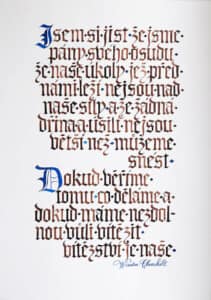 Jsem si jist že jsme
pány svého osudu
že naše úkoly jež před
námi leží nejsou nad
naše síly a že žádná
dřina a úsilí nejsou
větší než můžeme
snést.
Dokud věříme
tomu co děláme a
dokud máme nezdol-
nou vůli vítězit
vítězství je naše.
Winston Churchill